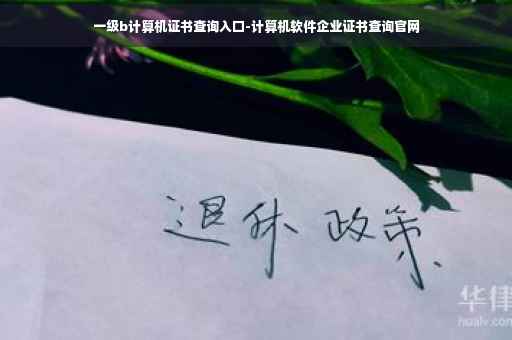 一级b计算机证书查询入口-计算机软件企业证书查询官网
退休 政策
华律
hualv.com